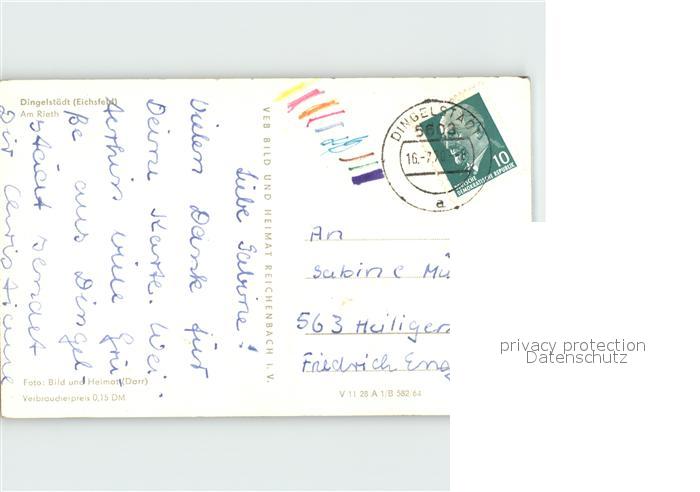 Dingelstädt (Eichsfeld)
Am Rieth
Liebe Sabine!
Vielen Dank für
Deine Karte. Wei-
terhin viele Grü-
ße aus Dingel-
städt sendet
Dir Christiane
Foto: Bild und Heimat (Darr)
Verbraucherpreis 0,15 DM
VEB BILD UND HEIMAT REICHENBACH I. V.
DINGELSTÄDT
5603
16.-7.70
a
10
DEUTSCHE
DEMOKRATISCHE REPUBLIK
An
Sabine Mü
563 Heiligen
Friedrich Eng
V 11 28 A 1/B 582/64
privacy protection
Datenschutz